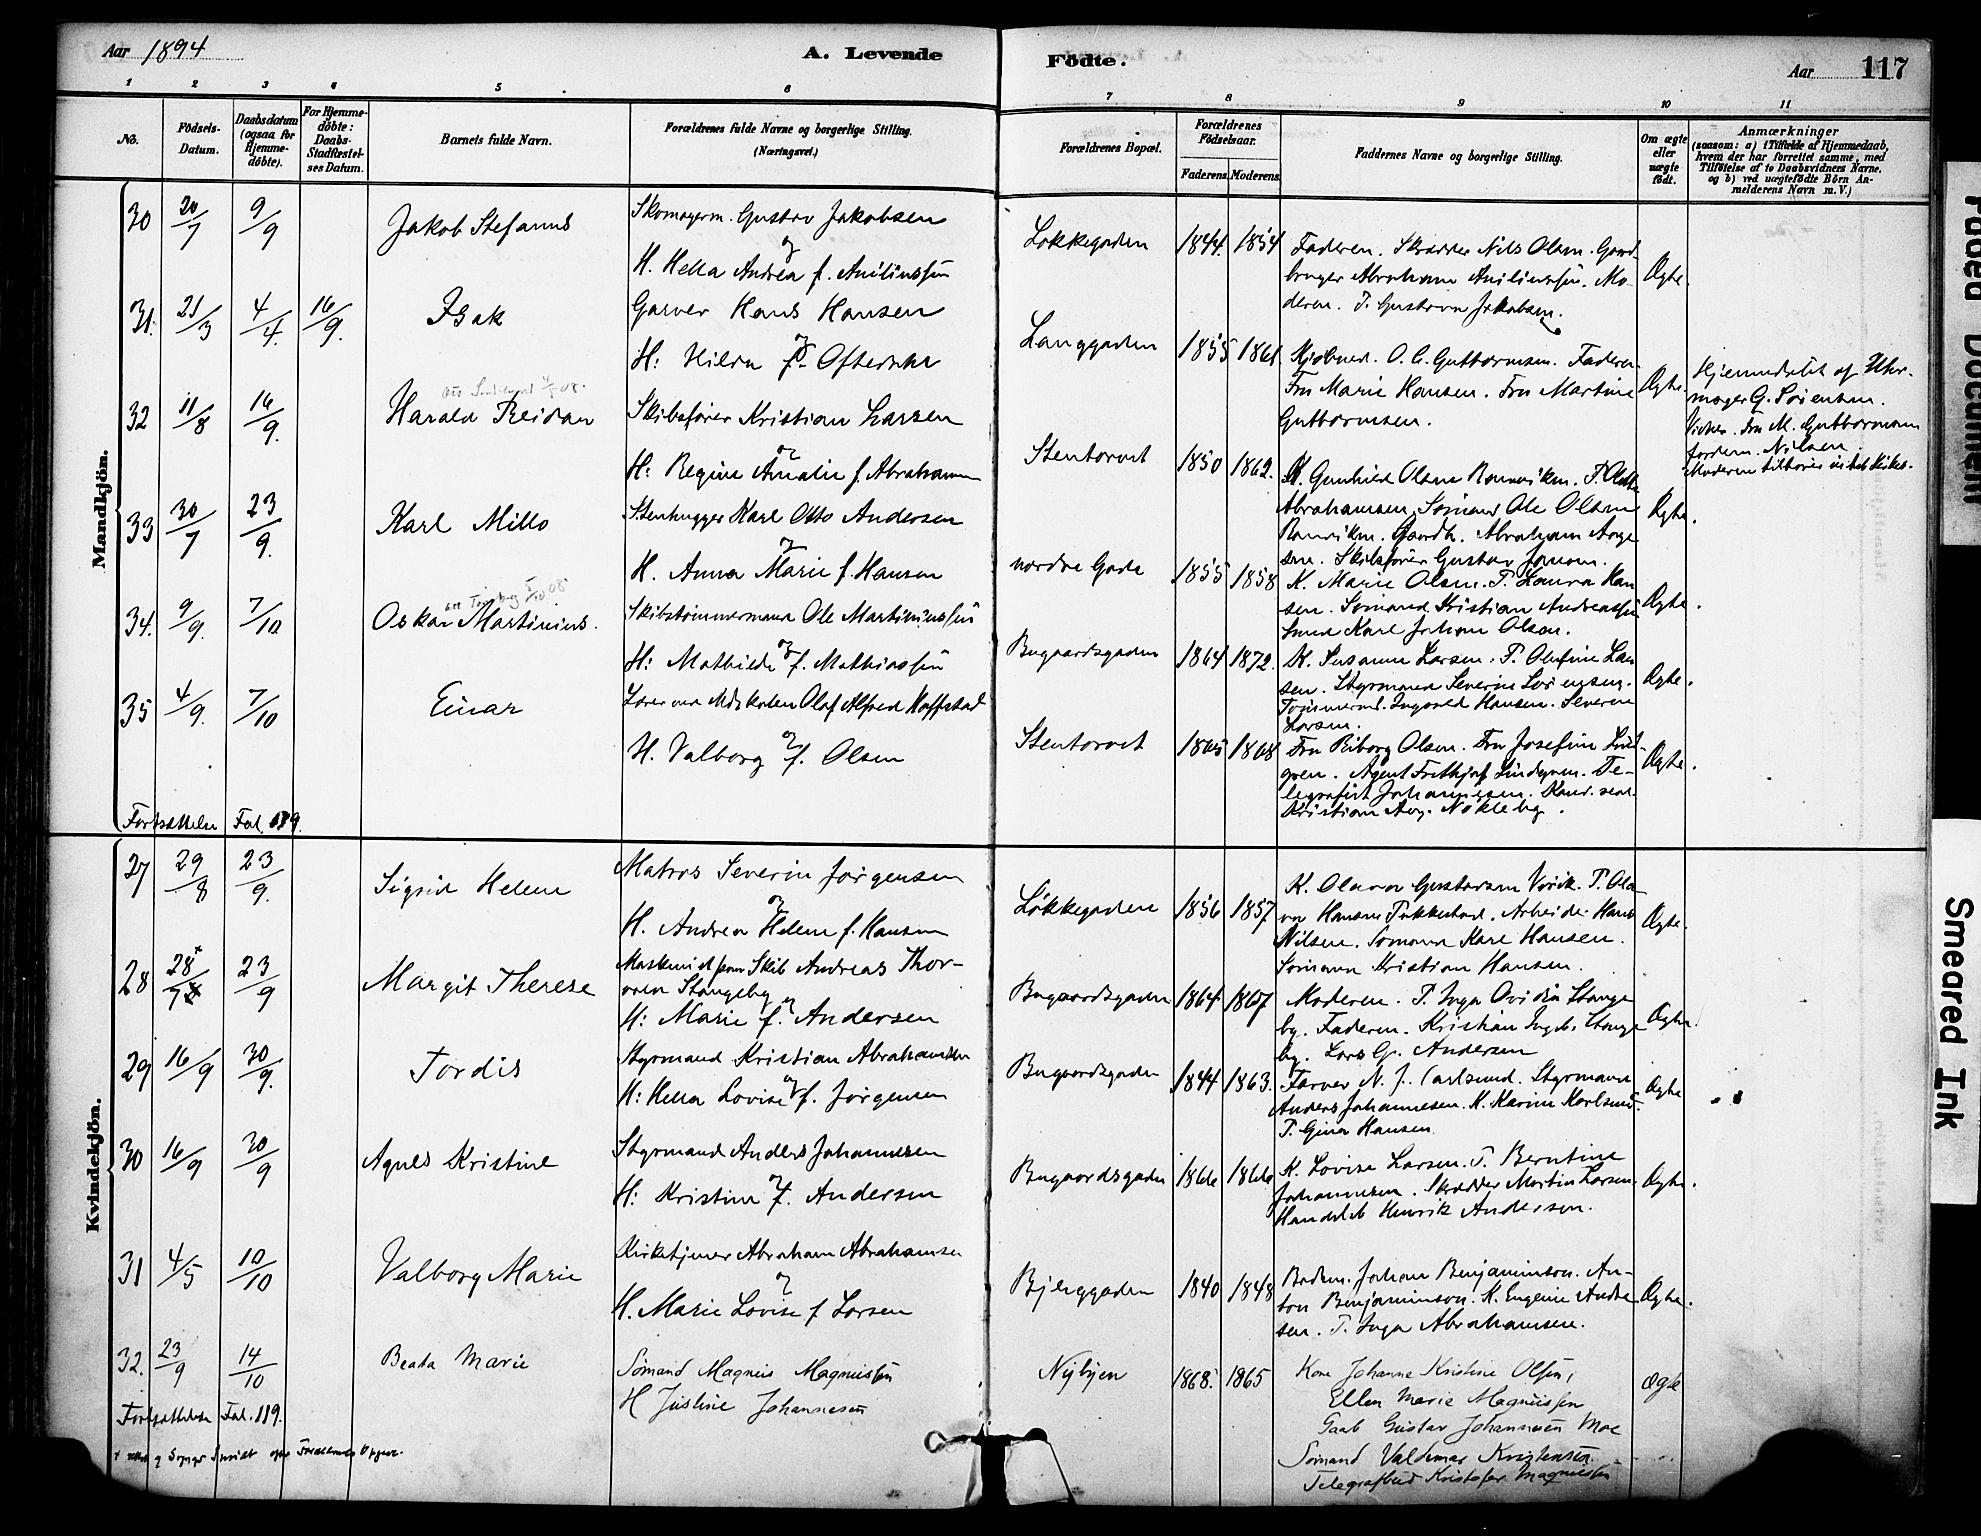 Aar 1894
A. Levende
Födte.
Aar 117
1 2 3 4 5 6 7 8 9 10 11
No.
Födsels-Datum.
Daabsdatum (ogsaa for Hjemme-döbte).
For Hjemme-döbte: Daabs-Stadfæstel-ses Datum.
Barnets fulde Navn.
Forældrenes fulde Navne og borgerlige Stilling. (Næringsvei.)
Forældrenes Bopæl.
Forældrenes Födselsaar.
Faderens. Moderens.
Faddernes Navne og borgerlige Stilling.
Om ægte eller uægte födt.
Anmærkninger
(saasom: a) i Tilfælde af Hjemmedaab, hvem der har forrettet samme, med Tilföielse af to Daabsvidners Navne, og b) ved uægtefödte Börn An-melderens Navn m. V.)
Mandkjön.
30 20/7 9/9 Jakob Stefanus
Skomagerm. Gustav Jakobsen
og
H. Hella Andrea f.
Løkkegaden 1844. 1854
Faderen. Skrædder Nils Olsen. Gaard-
bruger Abraham Mo-
deren. P. Gustava Jakobsen.
Ægte.
31. 21/3 4/4. 16/9. Isak
Garver Hans Hansen
og
H: Hilda f. Oftedahl
Langgaden 1855 1861.
Kjøbmd. O. C. Guttormsen. Faderen.
Fru Marie Hansen. Fru Martine
Guttormsen.
Ægte.
Hjemmedøbt af Uhr-
mager G. Sørensen.
Vidner. Fru M. Guttormsen
Jordem. Nilsen
32 11/8 16/9. Harald Reidar
Skibsfører Kristian Larsen
og
H: Regine Amalie f. Abrahamsen
Stentorvet 1850 1862.
K. Gunhild Olsen Ramviken.
Abrahamsen, Sømand Ole Olsen
Ramviken. Gaardb. Abraham Aage
sen. Skibsfører Gustav Jansen.
Ægte.
33 30/7 23/9. Karl Millo
Stenhugger Karl Otto Andersen
og
H. Anna Marie f. Hansen
nordre Gade 1855 1858
K. Marie Olsen. P. Laura Han
sen. Sømand Kristian Andreassen
Smed Karl Johan Olsen.
Ægte.
34. 9/9. 7/10 Oskar Martinius.
Skibstømmermand Ole Martiniussen
og
H: Mathilde f. Mathiassen
Bugaardsgaden 1864 1872.
K. Susanne Larsen. P. Olufine Lar
sen. Styrmand Severin Sørensen.
Tømmermd. Ingvald Hansen. Severin
Larsen.
Ægte.
35 4/9. 7/10 Einar
Lærer ved Mdskolen Olaf Alfred Kaffstad
og
H. Valborg f. Olsen
Stentorvet 1865 1868
Fru Viborg Olsen. Fru Josefine Lind-
gren. Agent Frithjof Lindgren. Te-
legrafist Johannesen. Kand. real.
Kristian Aug. Nökleby.
Ægte.
Fortsættelse Fol. 119.
Kvindekjön.
27 29/8 23/9. Sigrid Helene
Matros Severin Jørgensen
og
H. Andrea Helene f. Hansen
Løkkegaden 1856 1857
K. Olava Gustavsen Virik. P. Ola-
va Hansen Pukkestad. Arbeider Hans
Nilsen. Sømand Karl Hansen.
Sømand Kristian Hansen.
Ægte.
28 28+/7 23/9 Margit Therese
Maskinist paa Skib Andreas Thor-
vald Stangeby
og
H: Marie f. Andersen
Bugaardsgaden 1864 1867
Moderen. P. Inga Ovidia Stange
by. Faderen. Kristian Ingb. Stange
by. Lars G. Andersen
Ægte.
29 16/9 30/9. Tordis
Styrmand Kristian Abrahamsen
og
H: Hella Lovise f. Jørgensen
Bugaardsgaden 1844 1863.
Farver N. J. Carlsund. Styrmand
Anders Johannesen. K. Karine Karlsund.
P. Gina Hansen
Ægte
30 16/9 30/9 Agnes Kristine
Styrmand Anders Johannesen
og
H: Kristine f. Andersen
Bugaardsgaden 1866 1866
K. Lovise Larsen. P. Berntine
Johannesen. Skrædder Martin Larsen.
Handelsb. Henrik Andersen.
Ægte.
31 4/5 10/10 Valborg Marie
Kirketjener Abraham Abrahamsen
og
H. Marie Lovise f. Larsen
Bjerggaden 1840 1848
Bødker. Johan Benjaminson. An-
ton Benjaminson. K. Eugenie Andre
sen. P. Inga Abrahamsen.
Ægte.
32. 23/9 14/10 Beata Marie
Sømand Magnus Magnussen
H Justine Johannesen
Nybyen 1868. 1865
Kone Johanne Kristine Olsen,
Ellen Marie Magnussen
Gaab Gustav Johannesen Moe
Sømand Valdemar Kristensen.
Telegrafbud Kristofer Magnussen
ægte
Fortsættelse Fol. 119.
Faded Document
Smeared Ink